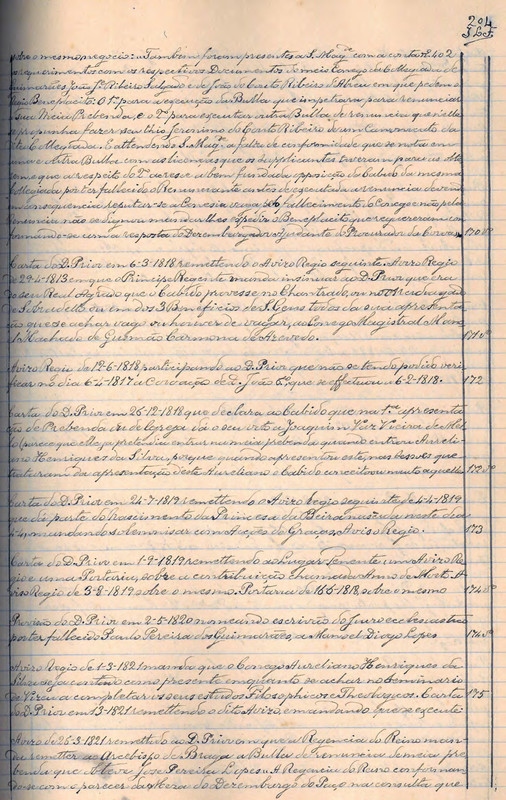 204
sobre o mesmo negocio: Tambem foram presentes a S. Magde com a conta
os requerimentos com os respectivos Documentos do meio Conego da Collegiada de
Guimarães João Je Ribeiro Salgado e do João do Couto Ribeiro d'Abreu em que pedem o
Regio Beneplacito: O 1º para a execução da Bulla que impetrara para renunciar
a sua Meia Prebenda, e o 2º para executar outra Bulla de renuncia que n'ella
se propunha fazer seu thio Jeronimo do Couto Ribeiro de um Canonicato da
Collegiada. E attendendo S. Magde a falta de conformidade que se nota em
uma e outra Bulla com as licenças que os supplicantes tiveram para as
e que a respeito do 2º accresce a bem fundada opposição do Cabido da mesma
Collegiada por ter fallecido o Renunciante antes de executada a renuncia devendo
em consequencia reputar-se a Conesia vaga por fallecimento do Conego e não pela
renuncia não se dignou mandar-lhes expedir o Beneplacito que requereram con-
formando-se com a resposta do Dezembargador Ajudante do Procurador da Coroa. 170 vº
Carta do D. Prior em 6-3-1818 remettendo o Aviso Regio seguinte. Aviso Regio
de 29-4-1813 em que o Principe Regente manda insinuar ao D. Prior que era
do seu Real Agrado que o Cabido provesse na Chantrado, ou no
de Sobradello ou em dos 3 Beneficios de S. Gens todos da sua apresenta-
ção que se achar vago ou houver de vagar, ao Conego Magistral
Machado de Gusmão Carmona de Azevedo. 171 vº
Aviso Regio de 12-6-1818 participando ao D. Prior que não se tendo podido veri-
ficar no dia 6-4-1817 a Coroação de D. João 6º, que se effectuou a 6-2-1818. 172
Carta do D. Prior em 26-12-1818 que declara ao Cabido que na 1ª apresenta-
ção de Prebenda de Igreja dá o seu voto a Joaquim Vaz Vieira de Mel-
lo (parece que elle já pretendia entrar na meia prebenda quando entrou Aureli-
ano Henriques da Silva, porque quando apresentou este, nas bases que
trataram da apresentação deste Aureliano o Cabido acceitou muito aquelle 172 vº
Carta do D. Prior em 24-7-1819 remettendo o Aviso Regio seguinte de 4-4-1819
que dá parte do nascimento da Princesa da Beira nascida neste dia
4-4, mandando solemnisar com Acções de Graças, Aviso Regio. 173
Carta do D. Prior em 1-9-1819 remettendo ao Lugar Tenente um Aviso Re-
gio e uma Portaria, sobre a contribuição chamada Anno de Morto. A-
viso Regio de 3-8-1819 sobre o mesmo. Portaria de 16-5-1818, sobre o mesmo 174 vº
Provisão do D. Prior em 2-5-1820 nomeando escrivão do Juizo ecclesiastico
por ter fallecido Paulo Pereira dos Guimarães, a Manoel Diogo Lopes 174 vº
Aviso Regio de 1-3-1821 manda que o Conego Aureliano Henriques da
Silva seja contado como presente emquanto se achar no Seminario
de Vizeu a completar os seus estudos Filosophicos e Theologicos. Carta
do D. Prior em 13-1821 remettendo o dito Aviso, e mandando que se execute 175
Aviso de 26-3-1821 remettido ao D. Prior em que a Regencia do Reino man-
dou remetter ao Arcebispo de Braga a Bulla de renuncia da meia pre-
benda que obteve Jose Pereira Lopes. A Regencia do Reino conforman-
do-se com o parecer da Mesa do Dezembargo do Paço na consulta que